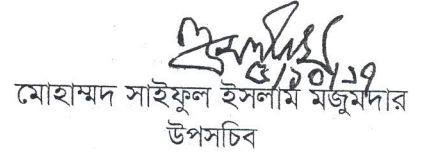 ৫/১০/১৭
মোহাম্মদ সাইফুল ইসলাম মজুমদার
উপসচিব